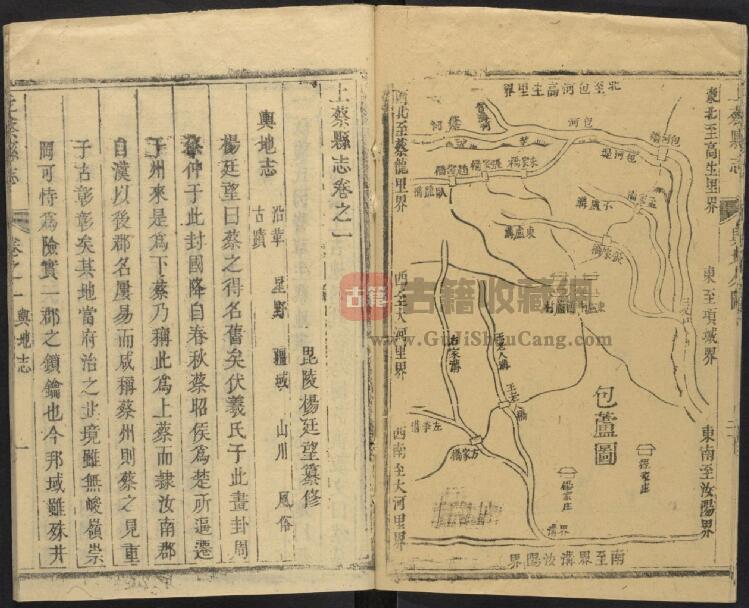 上蔡縣志
東北至高生里界
東至項城界
東南至汝陽界
北至包河高生里界
包河
包河堤
包河橋
孟家橋
小盧溝
東盧溝
臥龍溝
朱家橋
王家橋
包蘆圖
左家溝
左李溝
方家橋
楊家庄
南至界溝汝陽界
西北至蔡龍里界
西至大河里界
西南至大河里界
上蔡縣志卷之一
毘陵楊廷望纂修
輿地志
沿革 星野 疆域 山川 風俗
古蹟
楊廷望曰蔡之得名舊矣伏羲氏于此畫卦周
蔡仲于此封國降自春秋蔡昭侯爲楚所逼遷
于州來是爲下蔡乃稱此爲上蔡而隸汝南郡
自漢以後郡名屢易而咸稱蔡州則蔡之見重
于古彰彰矣其地當府治之北境雖無峻嶺崇
岡可恃爲險實一郡之鎖鑰也今邦域雖殊井
上蔡縣志
卷之一 輿地志 一
古籍 古籍收藏网
www.GuJiShouCang.com